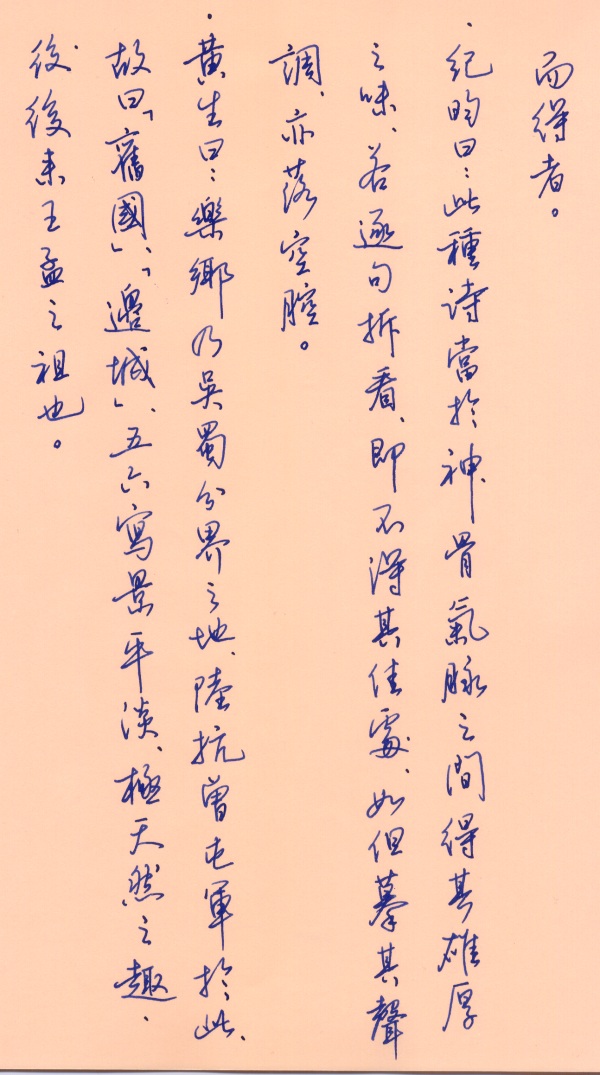 而得者。
·紀昀曰：此種詩當於神骨氣脉之間得其雄厚
之味、若逐句拆看、即不得其佳處、如但摹其聲
調、亦落空腔。
·黃生曰：樂鄉乃吳蜀分界之地、陸抗曾屯軍於此、
故曰「舊國」、「邊城」、五六寫景平淡、極天然之趣、
後後來王孟之祖也。